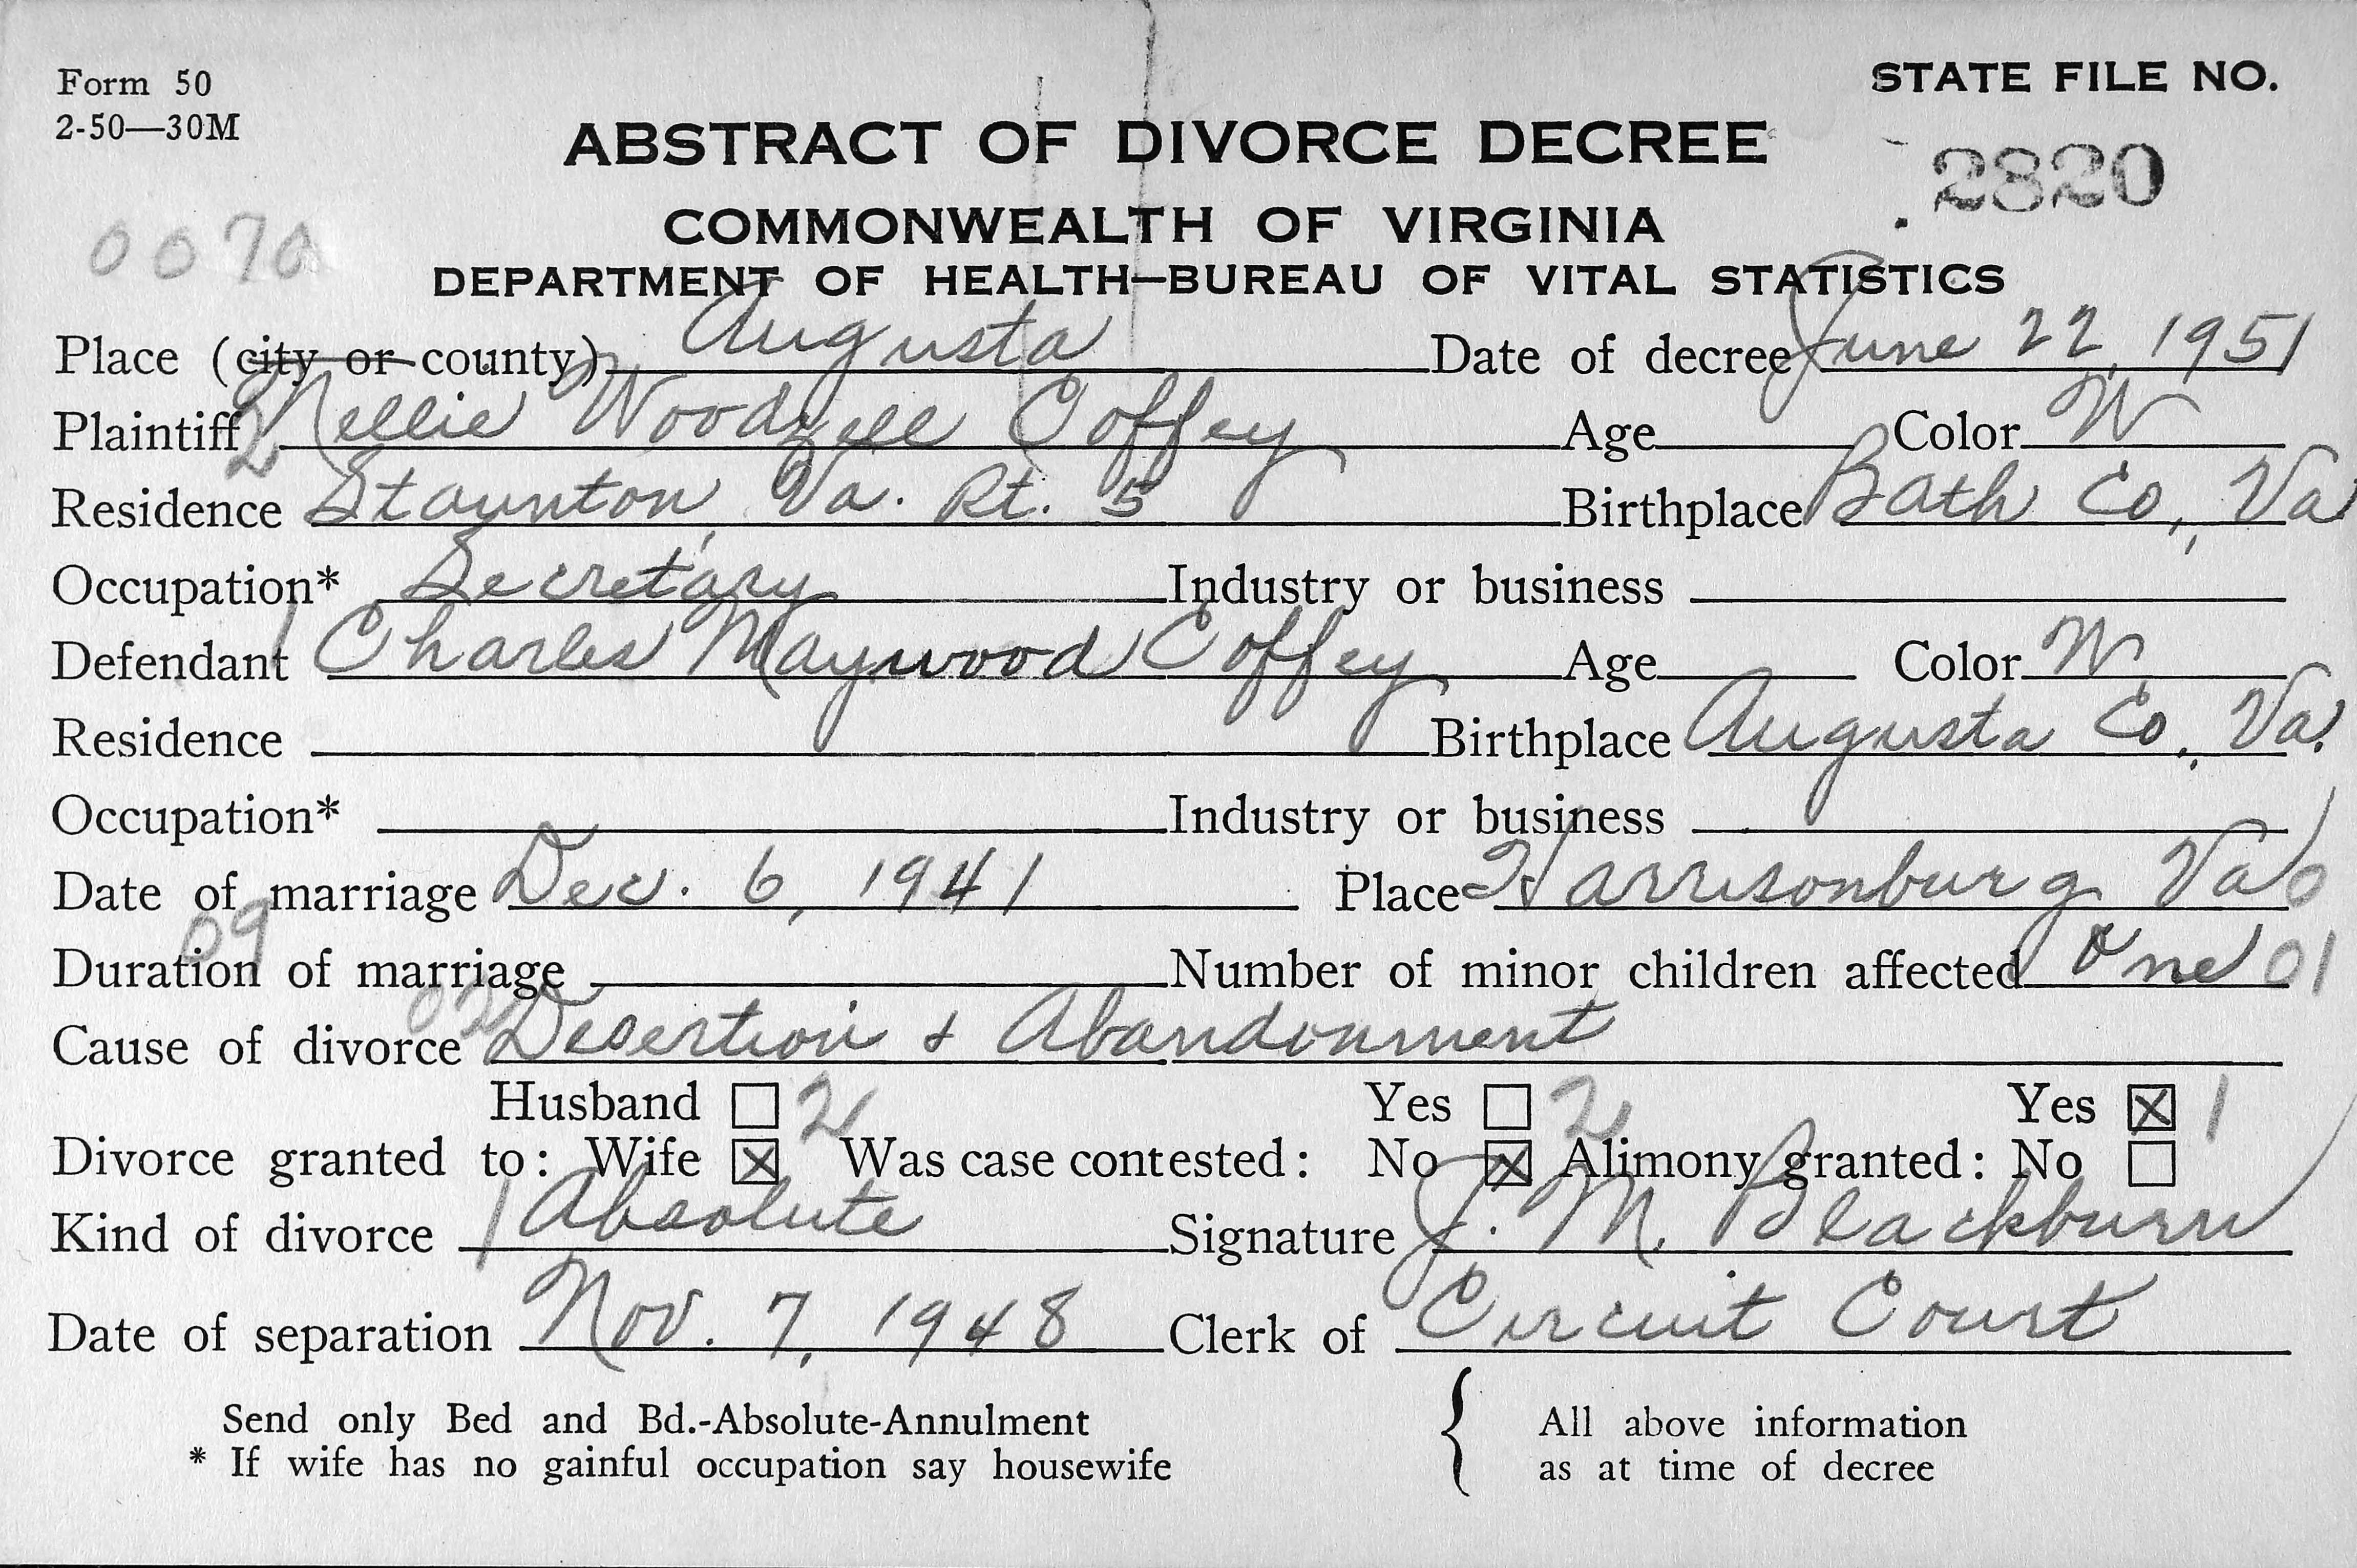 Form 50
2-50—30M
STATE FILE NO.
2820
ABSTRACT OF DIVORCE DECREE
COMMONWEALTH OF VIRGINIA
0070
DEPARTMENT OF HEALTH—BUREAU OF VITAL STATISTICS
Place (city or county) Augusta Date of decree June 22, 1951
Plaintiff 2 Nellie Woodzell Coffey Age Color W
Residence Staunton, Va. Rt. 5 Birthplace Bath Co., Va
Occupation* Secretary Industry or business
Defendant 1 Charles Maywood Coffey Age Color W
Residence Birthplace Augusta Co., Va.
Occupation* Industry or business
Date of marriage Dec. 6, 1941 Place Harrisonburg Va 0
09
Duration of marriage Number of minor children affected One 01
Cause of divorce 02 Desertion & Abandonment
Husband 2 Yes 2 Yes X 1
Divorce granted to: Wife X Was case contested: No X Alimony granted: No
Kind of divorce 1 Absolute Signature J. M. Blackburn
Date of separation Nov. 7, 1948 Clerk of Circuit Court
Send only Bed and Bd.-Absolute-Annulment { All above information
* If wife has no gainful occupation say housewife as at time of decree